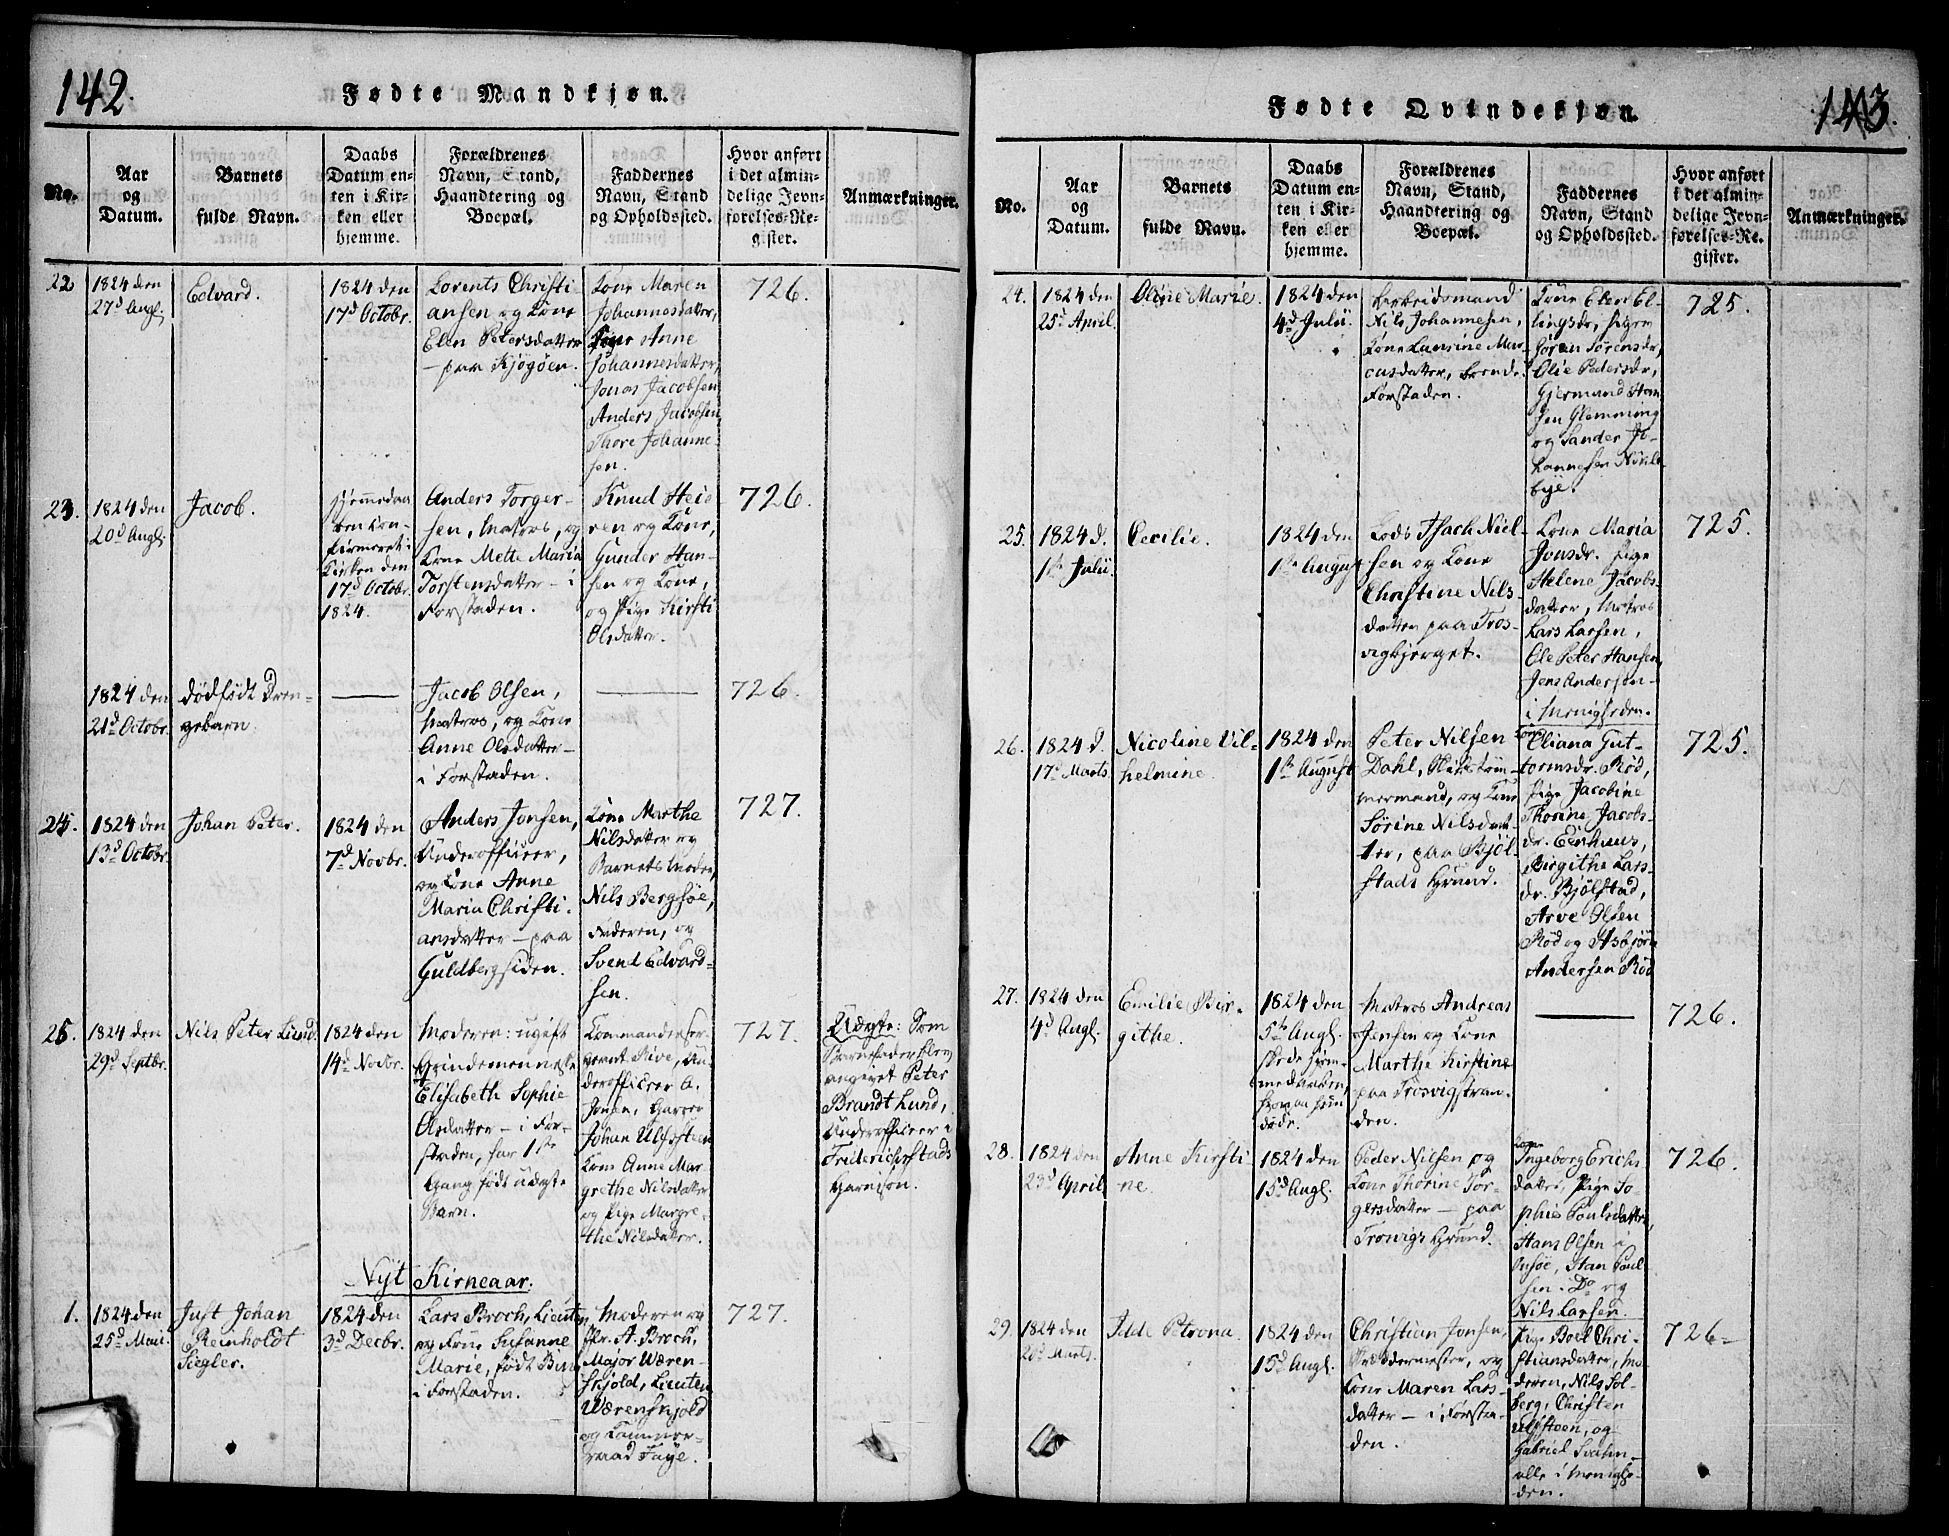 142.
Fødte Mandkjøn.
No.
Aar
og
Datum.
Barnets
fulde Navn.
Daabs
Datum en-
ten i Kir-
ken eller
hjemme.
Forældrenes
Navn, Stand,
Haandtering og
Boepæl.
Faddernes
Navn, Stand
og Opholdssted.
Hvor anført
i det almin-
delige Jevn-
førelses-Re-
gister.
Anmærkninger.
22
1824 den
27d Augl.
Edvard.
1824 den
17d Octobr.
Lorents Christi-
ansen og Kone
Elen Petersdatter
- paa Kjøgøen.
Kone Maren
Johannesdatter,
Pige Anne
Johannesdatter,
Jonas Jacobsen
Anders Jacobsen,
Thore Johanne-
sen.
726.
23.
1824 den
20d Augl.
Jacob.
hjemmedøbt
Kirken den
17d Octobr.
1824.
Anders Torger-
sen, Matros, og
Kone Mette Maria
Torstensdatter - i
Forstaden.
Knud Heie-
ren og Kone,
Gunder Han-
sen og Kone,
og Pige Kirsti
Olsdatter.
726.
1824 den
21d Octobr.
dødfødt Dren-
gebarn.
Jacob Olsen,
Matros, og Kone
Anne Olsdatter -
i Forstaden.
726.
24.
1824 den
13d Octobr.
Johan Peter.
1824 den
7d Novbr.
Anders Jonsen,
Underofficeer,
og Kone Anne
Maria Christi-
ansdatter - paa
Guldbergsiden.
Kone Marthe
Nilsdatter og
Barnets Moder,
Nils Bergsøe,
Faderen, og
Svend Edvard-
sen.
727.
25.
1824 den
29d Septbr.
Nils Peter Lund.
1824 den
14d Novbr.
Moderen: ugift
Qvindemenneske
Elisabeth Sophie
Olsdatter - i For-
staden, har 1ste
Gang født uægte
Barn.
derofficeer A.
Jonsen, Garver
Johan Ulfssteen
Kone Anne Mar-
grethe Nilsdatter
og Pige Margre-
the Nilsdatter.
727.
Uægte: Som
Barnefader blev
angivet Peter
Brandt Lund,
Underofficeer i
Friderichsstads
Garnison.
Nyt Kirkeaar.
1.
1824 den
25d Mai.
Just Johan
Reinholdt
Siegler.
1824 den
3d Decbr.
Lars Broch, Lieuten.
og Kone Susanne
Marie, født Bing
i Forstaden.
Moderen og
Hr. A. Broch,
Major Wæren-
skjold, Lieuten.
Wærenskjold
og Kammer-
raad Faye.
727.
143.
Fødte Qvindekjøn.
No.
Aar
og
Datum.
Barnets
fulde Navn.
Daabs
Datum en-
ten i Kir-
ken eller
hjemme.
Forældrenes
Navn, Stand,
Haandtering og
Boepæl.
Faddernes
Navn, Stand
og Opholdssted.
Hvor anført
i det almin-
delige Jevn-
førelses-Re-
gister.
Anmærkninger.
24.
1824 den
25d April.
Oline Marie.
1824 den
4d Julii.
Arbeidsmand
Nils Johannesen,
Kone Laurine Mar-
cusdatter,
Forstaden.
Kone Elen El-
lingsdr, Pigen
Jøran Sørensdr,
Olie Pedersdr,
Gjermund Han-
sen Glemming
og Sander Jo-
hannesen Nikle-
bye.
725.
25.
1824 d.
1ste Julii.
Cecilie.
1824 den
1ste August
Lods Isach Niel-
sen og Kone
Christine Nils-
datter paa Tros-
vigbjerget.
Kone Maria
Jonsdr. Pige
Helene Jacobs-
datter, Matros
Lars Larsen,
Ole Peter Hansen,
Jens Andersen -
i Menigheden.
725.
26.
1824 d.
17d Marts
Nicoline Vil-
helmine.
1824 den
1ste August
Peter Nilsen
Dahl, Skibstøm-
mermand, og Kone
Sørine Nilsdat-
ter, paa Bjøl-
stads Grund.
Kone
Eliana Gut-
tormsdr. Rød,
Pige Jacobine
Thorine Jacobs-
dr. Eenhuus,
Birgithe Lars-
dr. Bjølstad,
Arve Olsen
Rød og Asbjørn
Andersen Rød
725.
27.
1824 den
4d Augl.
Emilie Bir-
githe.
1824 den
5te Augl.
skede hjem-
medaaben,
hvorpaa hun
døde.
Matros Andreas
Jensen og Kone
Marthe Kirstine
paa Trosvigstran-
den.
726.
28.
1824 den
23d April
Anne Kirsti-
ne.
1824 den
15d Augl.
Peder Nilsen og
Kone Thorine Tor-
gersdatter - paa
Trosvigs Grund.
Kone
Ingeborg Erichs-
datter, Pige So-
phie Poulsdatter,
Hans Olsen i
Onsøe, Hans Poul-
sen i Do og
Nils Larsen.
726.
29.
1824 den
20d Marts.
Ilde Petrona.
1824 den
15d Augl.
Christian Jonsen,
Skreddermester, og
Kone Maren Lars-
datter - i Forsta-
den.
Pige Boel Chri-
stiansdatter, Mo-
deren, Nils Sol-
berg, Christen
Ulfsteen, og
Gabriel Svahn -
alle i Menighe-
den.
726-